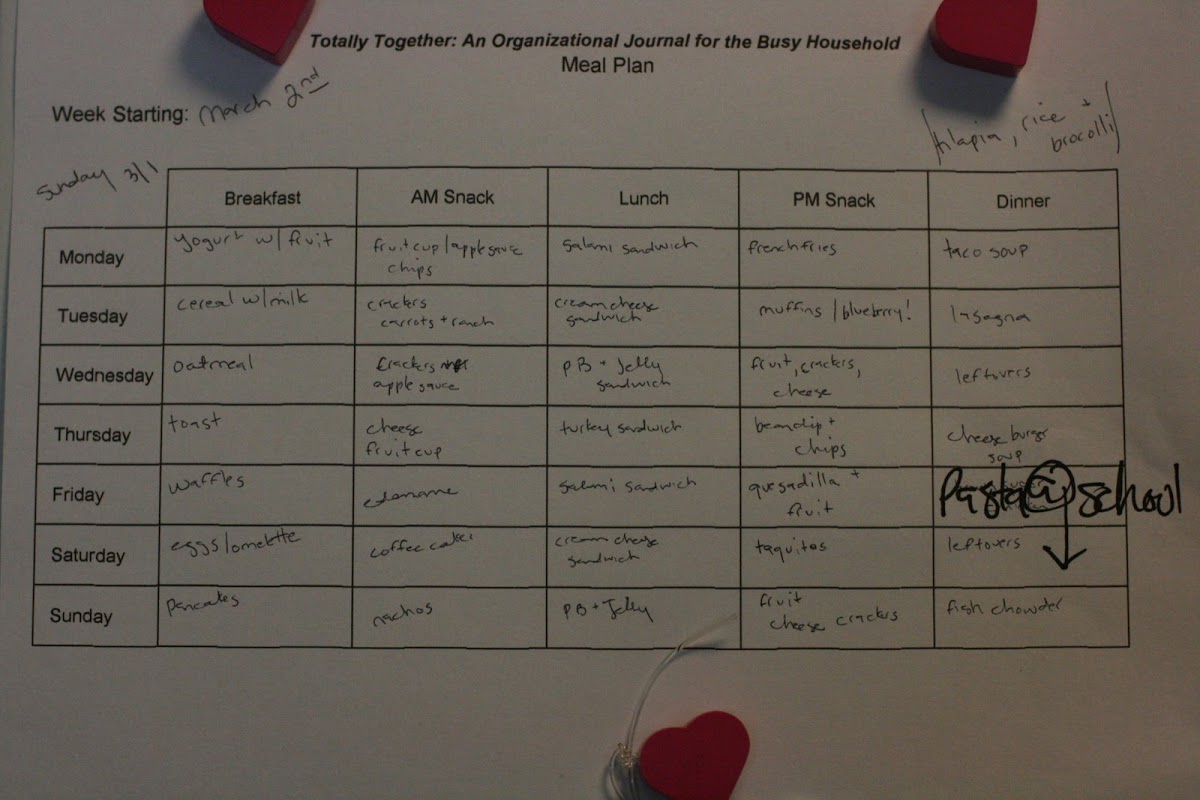 Totally Together: An Organizational Journal for the Busy Household
Meal Plan
Week Starting: March 2nd
tilapia, rice +
brocolli
Sunday 3/1
Breakfast AM Snack Lunch PM Snack Dinner
Monday yogurt w/ fruit fruit cup/apple sauce salami sandwich frenchfries taco soup
chips
Tuesday cereal w/milk crackers creamcheese muffins/blueberry! lasagna
carrots + ranch sandwich
Wednesday oatmeal crackers PB + Jelly fruit, crackers, leftovers
apple sauce sandwich cheese
Thursday toast cheese turkey sandwich beandip + cheese burger
fruit cup chips soup
Friday waffles edamame salami sandwich quesadilla + Pasta @ school
fruit
Saturday eggs/omelette coffee cake cream cheese taquitos leftovers
sandwich
Sunday pancakes nachos PB + Jelly fruit fish chowder
cheese crackers